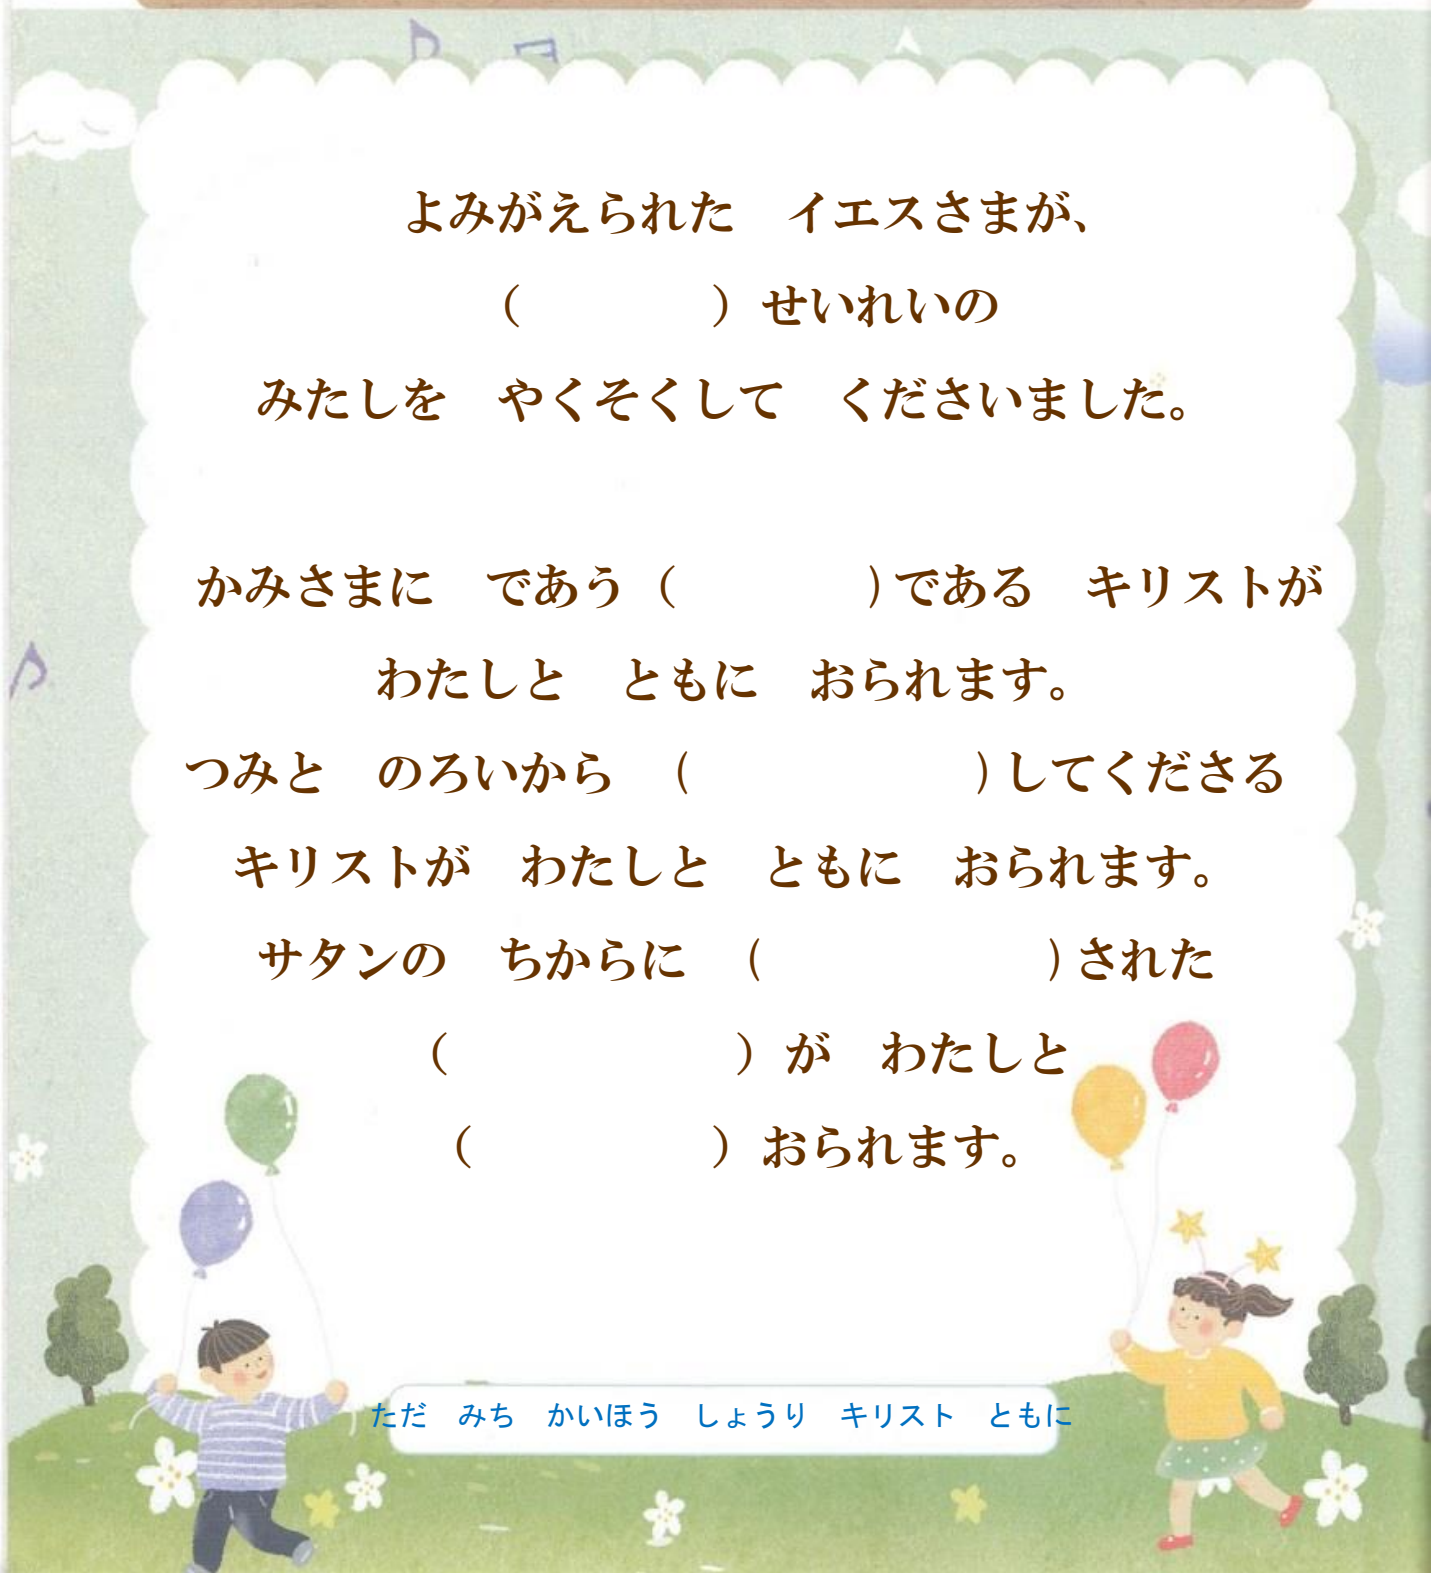 よみがえられた　イエスさまが、
（　　　　）せいれいの
みたしを　やくそくして　くださいました。
かみさまに　であう（　　　　)である　キリストが
わたしと　ともに　おられます。
つみと　のろいから　(　　　　　　)してくださる
キリストが　わたしと　ともに　おられます。
サタンの　ちからに　(　　　　　　)された
（　　　　　　）が　わたしと
（　　　　　）おられます。
ただ　みち　かいほう　しょうり　キリスト　ともに